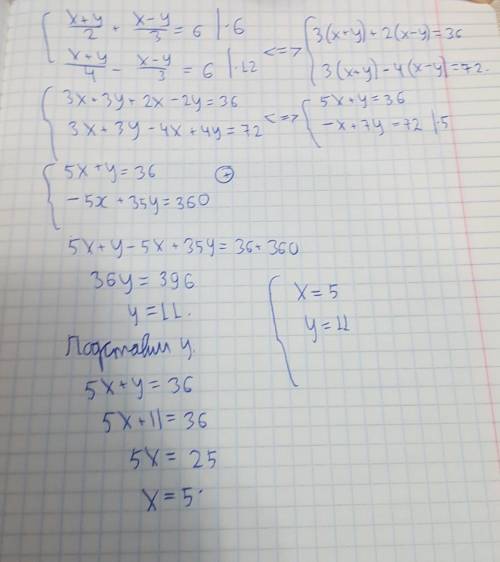 { (x+y)/2 + (x-y)/3 = 6 |·6 <=> { 3(x+y)+2(x-y)=36
(x+y)/4 - (x-y)/3 = 6 |·12 3(x+y)-4(x-y)=72.
{ 3x+3y+2x-2y=36 <=> { 5x+y=36
3x+3y-4x+4y=72 -x+7y=72 |·5
{ 5x+y=36 ⊕
-5x+35y=360
5x+y-5x+35y=36+360
36y=396
y=11.
Подставим y.
5x+y=36
5x+11=36
5x=25
x=5.
{ x=5
y=11